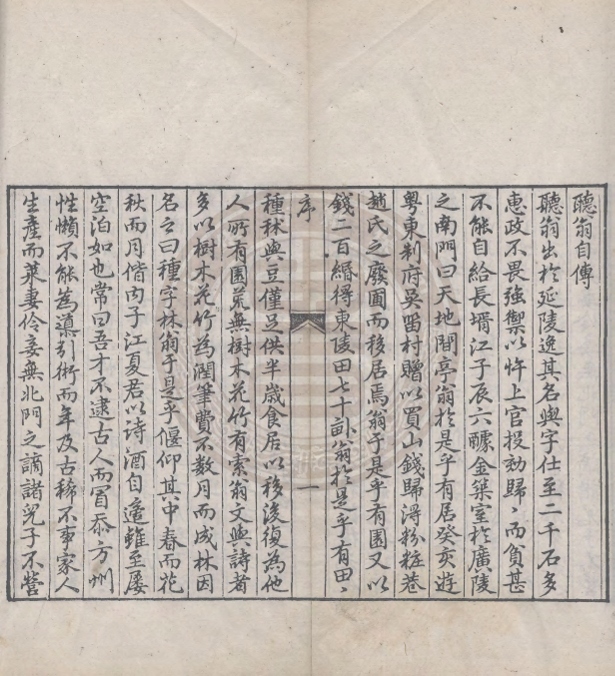 聽翁自傳
聽翁出於延陵逸其名與字仕至二千石多
惠政不畏強禦以忤上官投劾歸〻而負甚
不能自給長壻江子辰六醵金築室於廣陵
之南門曰天地間亭翁於是乎有居癸亥遊
粤東制府吳留村贈以買山錢歸淂粉粧巷
趙氏之廢圃而移居焉翁于是乎有園又以
錢二百緡得東陵田七十畝翁於是乎有田〻
序
一
種秫與豆僅足供半歲食居以移後復為他
人所有園荒無樹木花竹有索翁文與詩者
多以樹木花竹為潤筆費不数月而成林因
名之曰種字林翁于是乎偃仰其中春而花
秋而月偕內子江夏君以诗酒自遣雖至屡
空泊如也常曰吾才不逮古人而冒忝方州
性懶不能為導引術而年及古稀不事家人
生產而萊妻伶妾無北門之謫諸兒子不營